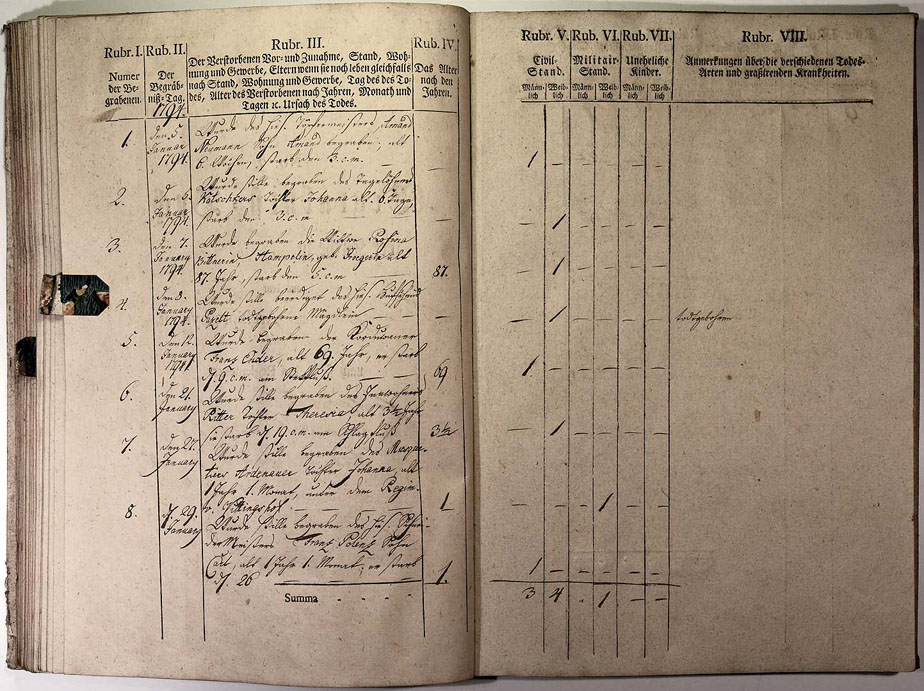 Rubr. I.
Numer
der Be-
grabenen.
Rub. II.
Der
Begräb-
niß-Tag.
1794.
Rubr. III.
Der Verstorbenen Vor- und Zunahme, Stand, Woh-
nung und Gewerbe, Eltern wenn sie noch leben gleichfalls
nach Stand, Wohnung und Gewerbe, Tag des To-
des, Alter des Verstorbenen nach Jahren, Monath und
Tagen ꝛc. Ursach des Todes.
Rub. IV.
Das Alter
nach den
Jahren.
1.
den 5.
Januar
1794.
Wurde des Töpfermeisters Amand
Neumann Sohn Amand begraben; alt
6. Wochen, starb den 3. c. m.
2.
den 6.
Januar
1794.
Wurde stille begraben des Tagelöhners
Tochter Johanna alt 6. Tage,
starb den 3. c. m
3.
den 7.
January
1794
Wurde begraben die Wittwe Rosina
Hampelin, geb. alt
87. Jahr, starb den 5. c. m
87.
4.
den 8.
January
1794.
Wurde stille beerdigt des
todtgebohrne Mägdlein
5.
den 12.
January
1794
Wurde begraben der
Franz Ender, alt 69. Jahr, er starb
d. 9. c. m. am Steckfluß.
69
6.
den 21.
January
Wurde stille begraben des Inwohners
Ritter Tochter Theresia alt 3½ Jahr
sie starb d. 19. c. m. am Schlagfluß
3½
7.
den 27.
January
Wurde stille begraben des Musque-
tiers Ardenauer Tochter Johanna, alt
1 Jahr 1. Monat, unter dem Regim-
1
8.
d. 29.
January
Wurde stille begraben des Schnei-
der Meisters Franz Polenz Sohn
Carl, alt 1 Jahr 1. Monat; er starb
d. 26
1.
Summa
Rubr. V.
Civil-
Stand.
Männ-
lich
Weib-
lich
Rub. VI.
Militair-
Stand.
Männ-
lich
Weib-
lich
Rub. VII.
Uneheliche
Kinder.
Männ-
lich
Weib-
lich
Rubr. VIII.
Anmerkungen über die verschiedenen Todes-
Arten und graßirenden Krankheiten.
1 – – – – –
– 1 – – – –
– 1 – – – –
– 1 – – – – todtgebohren
1 – – – – –
– 1 – – – –
– – – 1 – –
1 – – – – –
3 4 - 1 – –